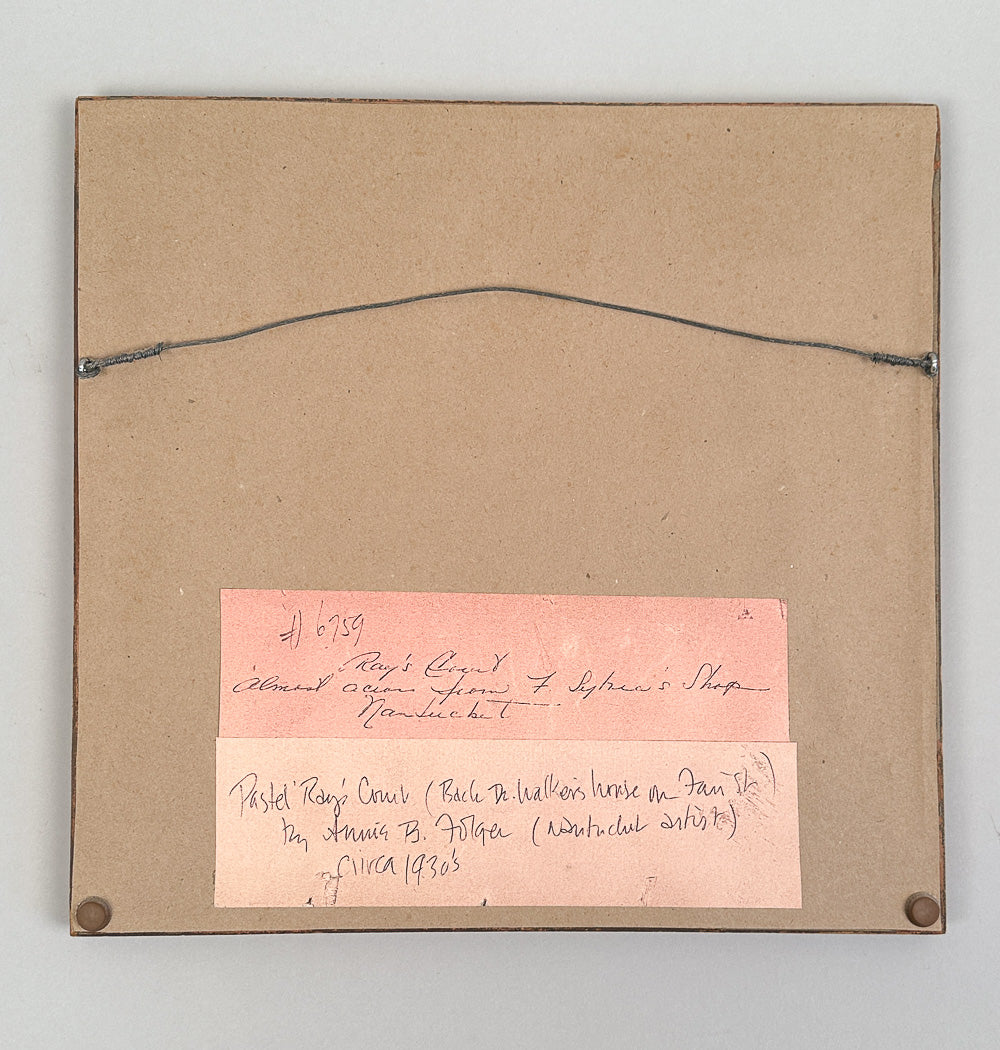 # 6759
Ray's Court
almost across from F Sylvia's Shop
Nantucket
Pastel Ray's Court (Back Dr. Walkers house on Fair St)
by Annie B. Folger (Nantucket artist)
Circa 1930's